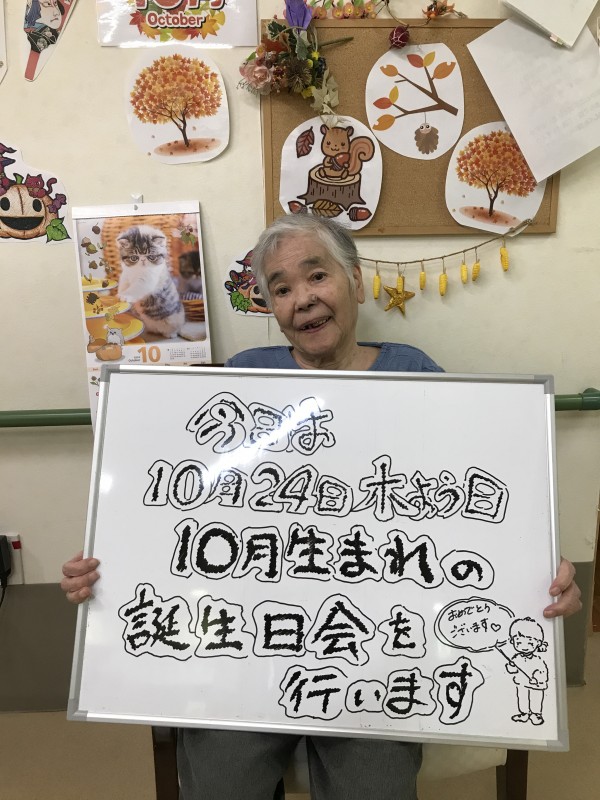 10月
October
10
今日は
10月24日木よう日
10月生まれの
誕生日会を
行います
おめでとう
ございます♡